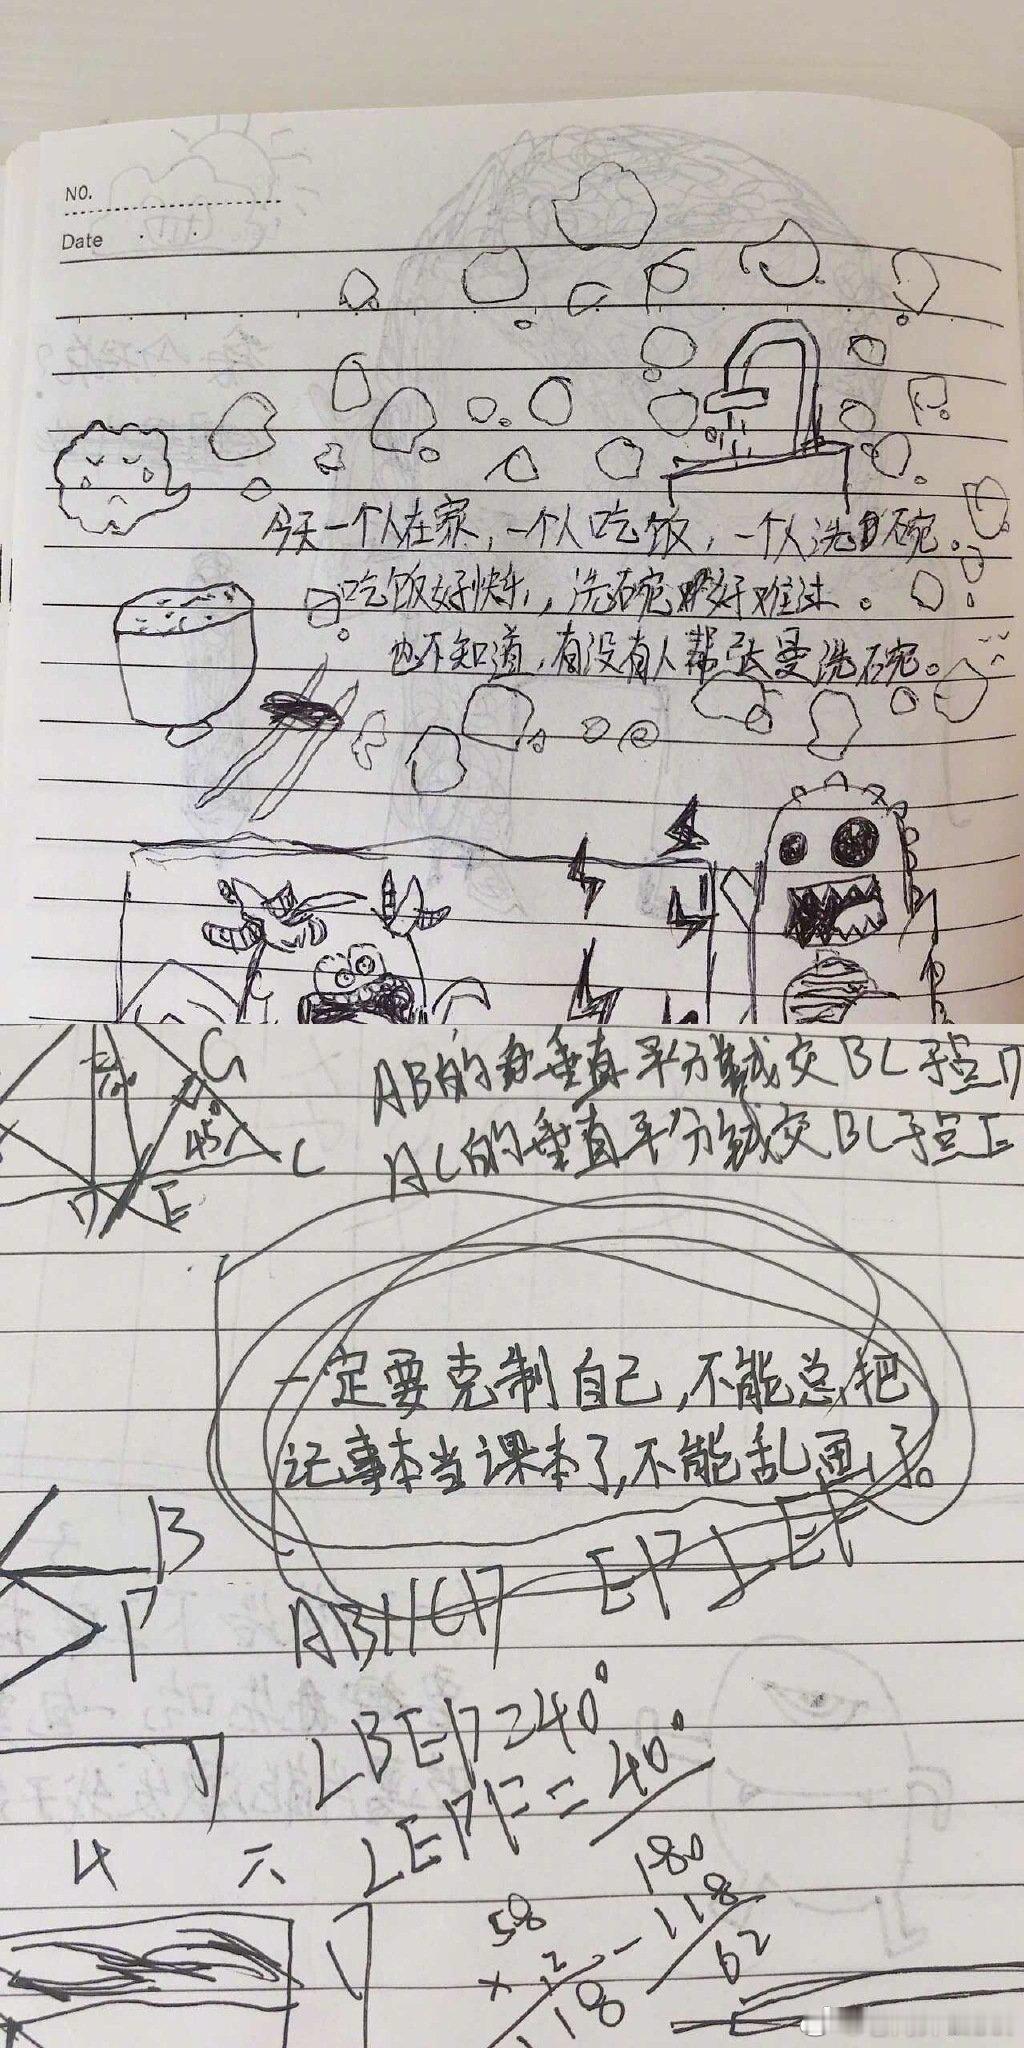 NO.
Date
今天一个人在家，一个人吃饭，一个人洗碗。
吃饭好快乐，洗碗好难过。
也不知道，有没有人帮张曼洗碗。
G
45°
C
D E
AB的垂直平分线交BC于点D
AC的垂直平分线交BC于点E
一定要克制自己，不能总把
记事本当课本了，不能乱画了。
B
AB//CD EP⊥EF
P
∠BEP=40°
∠EPF=40°
4 六
180
58
-118
×2
62
118